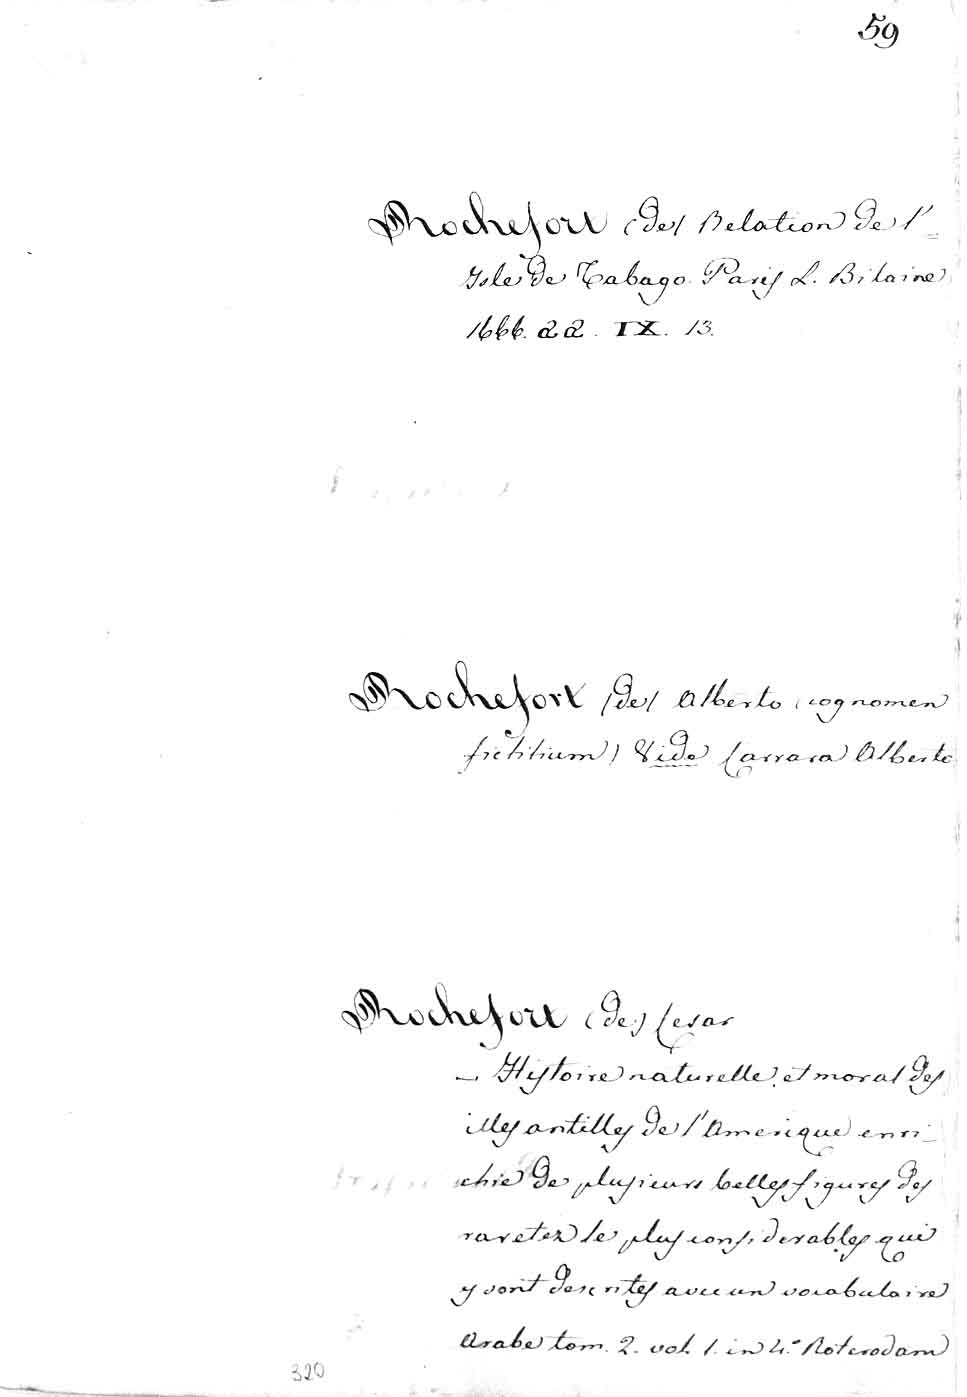 59
Rochefort (de) Relation de l'=
Isle de Tabago. Paris L. Bilaine
1666. aa. IX. 13.
Rochefort (de) Alberto (cognomen
fictitium) Vide Carrara Alberto
Rochefort (de) Cesar
— Histoire naturelle, et moral des
illes antilles de l'Amerique enri_
chie de plusieurs belles figures des
raretez le plus considerables qui
y sont descrites avec un vocabulaire
Arabe tom. 2. vol. 1. in 4.° Roterodam
320